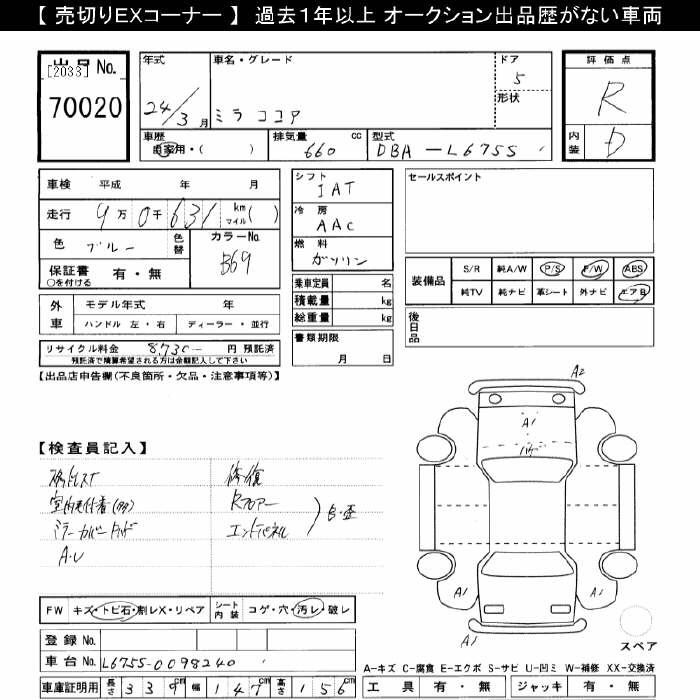 【 売切りEXコーナー 】 過去１年以上 オークション出品歴がない車両
出品No.
[2033]
70020
年式
24/3月
車名・グレード
ミラ ココア
ドア
5
形状
評価点
R
内装
D
車歴
自家用・( )
排気量 cc
660
型式
DBA-L675S
車検 平成 年 月
走行 9万0千631 km マイル( )
色 ブルー 色替
カラーNo.
B69
保証書 有・無
○を付ける
シフト
IAT
冷房
AAC
燃料
ガソリン
乗車定員 名
積載量 kg
総重量 kg
書類期限
月 日
セールスポイント
装備品
S/R 純A/W P/S F/W ABS
純TV 純ナビ 革シート 外ナビ エアB
後日品
外車
モデル年式 年
ハンドル 左・右 ディーラー・並行
リサイクル料金 8,730- 円 預託済
預託済で精算希望される方は金額記入して下さい
【出品店申告欄(不良箇所・欠品・注意事項等)】
【検査員記入】
修復
Rフロアー
エンドパネル
A・U
A2
A1
A1
A1
A1
FW キズ・トビ石・割レX・リペア シート内装 コゲ・穴・汚レ・破レ
登録No.
車台No. L675S-0098240
車庫証明用 長さ 339cm 幅 147cm 高さ 156cm
スペア
A-キズ C-腐食 E-エクボ S-サビ U-凹ミ W-補修 XX-交換済
工具 有・無 ジャッキ 有・無